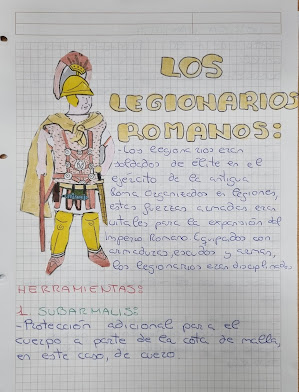 LOS
LEGIONARIOS
ROMANOS:
-Los legionarios eran
soldados de élite en el
ejército de la antigua
Roma. Organizados en legiones,
estas fuerzas armadas eran
vitales para la expansión del
imperio Romano. Equipados con
armaduras, escudos y armas,
los legionarios eran disciplinados
HERRAMIENTAS:
1. SUBARMALIS:
-Protección adicional para el
cuerpo a parte de la cota de malla,
en este caso, de cuero.